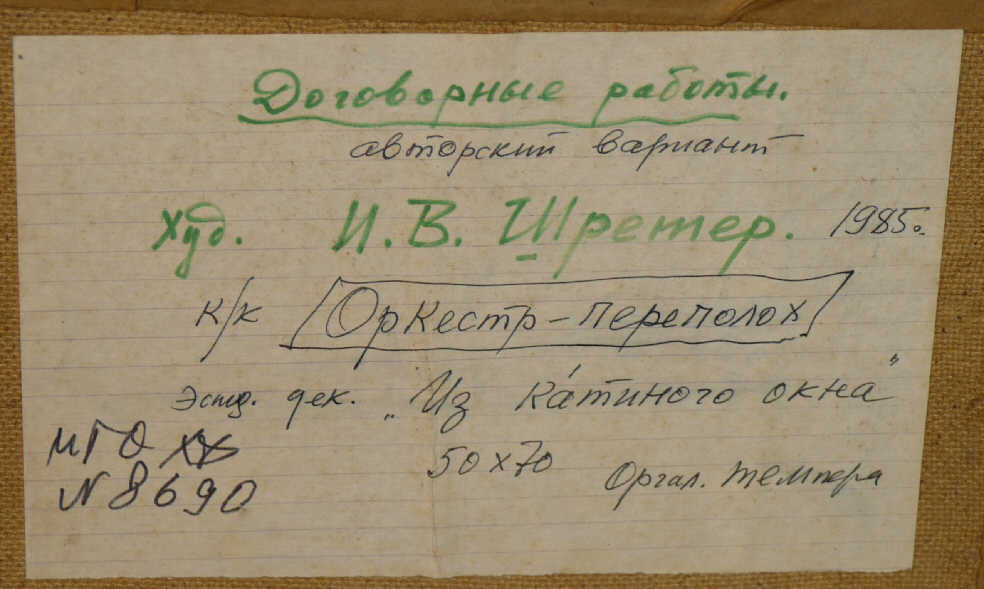 Договорные работы.
авторский вариант
Худ. И. В. Шретер. 1985г.
к/к Оркестр-переполох
Эскиз. дек. „Из Ка́тиного окна"
МГО ХХ
50х70
N 8690
Оргал. темпера